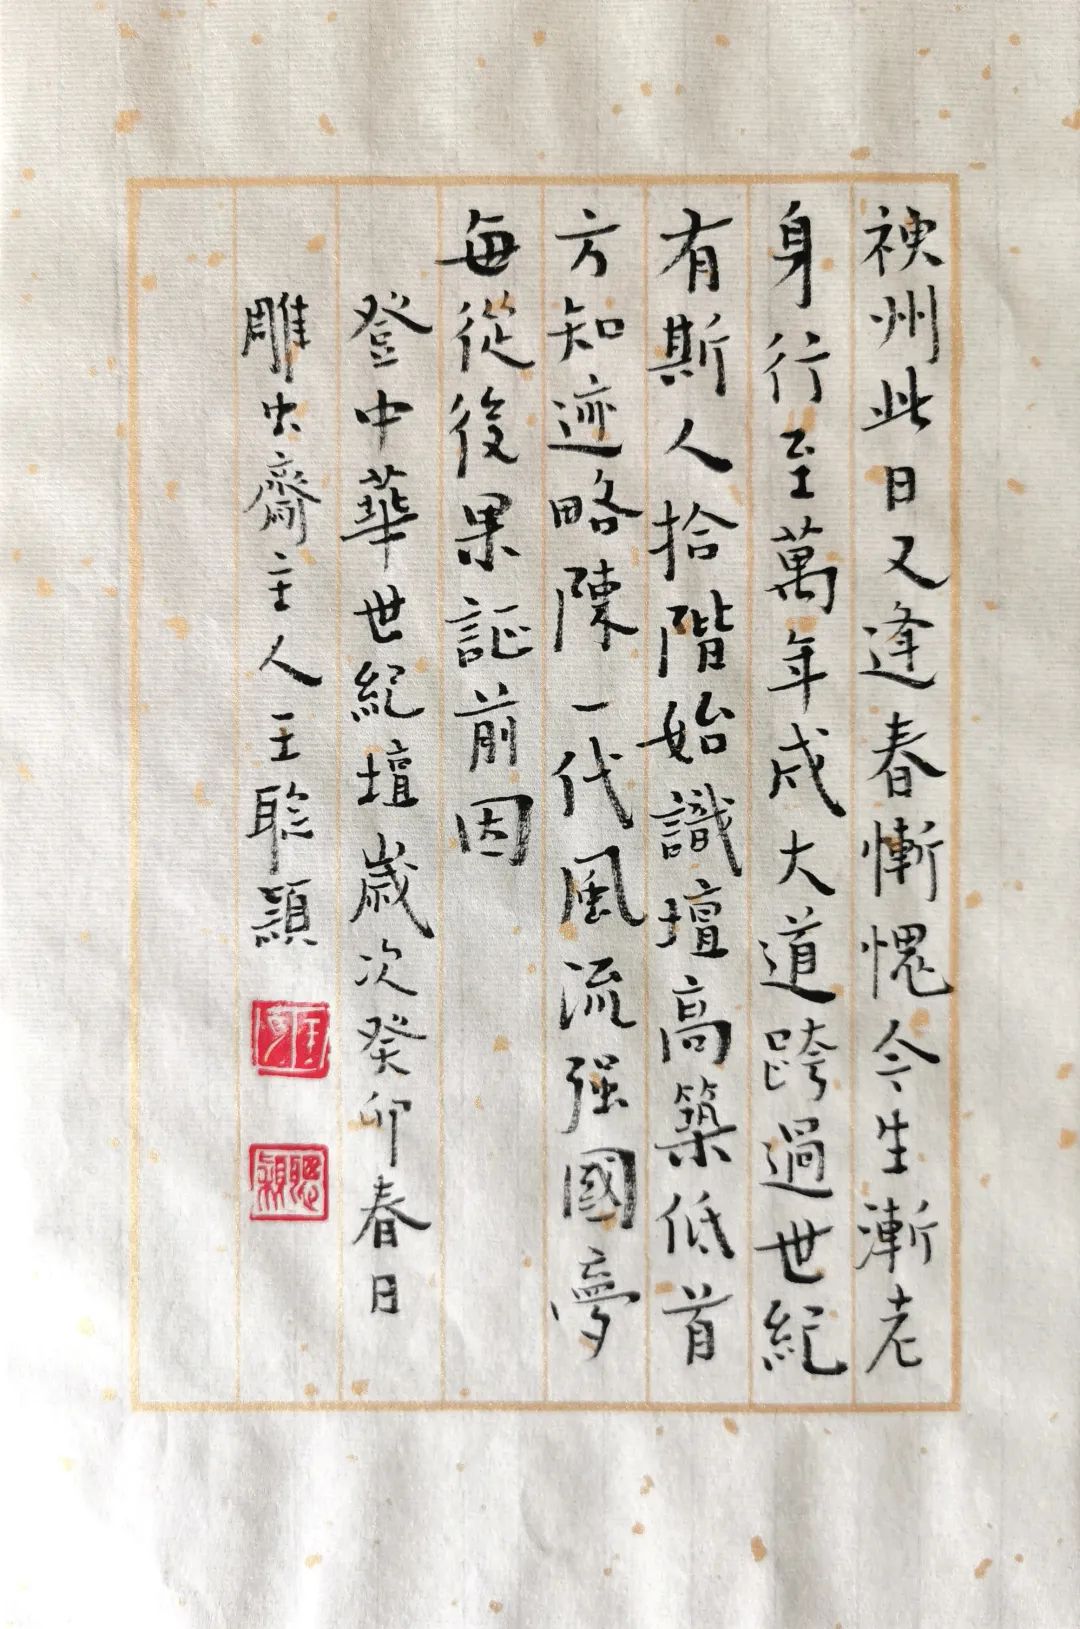 神州此日又逢春慚愧今生漸老
身行至萬年成大道跨過世紀
有斯人拾階始識壇高築低首
方知迹略陳一代風流强國夢
每從後果証前因
登中華世紀壇歲次癸卯春日
雕虫齋主人王聡穎